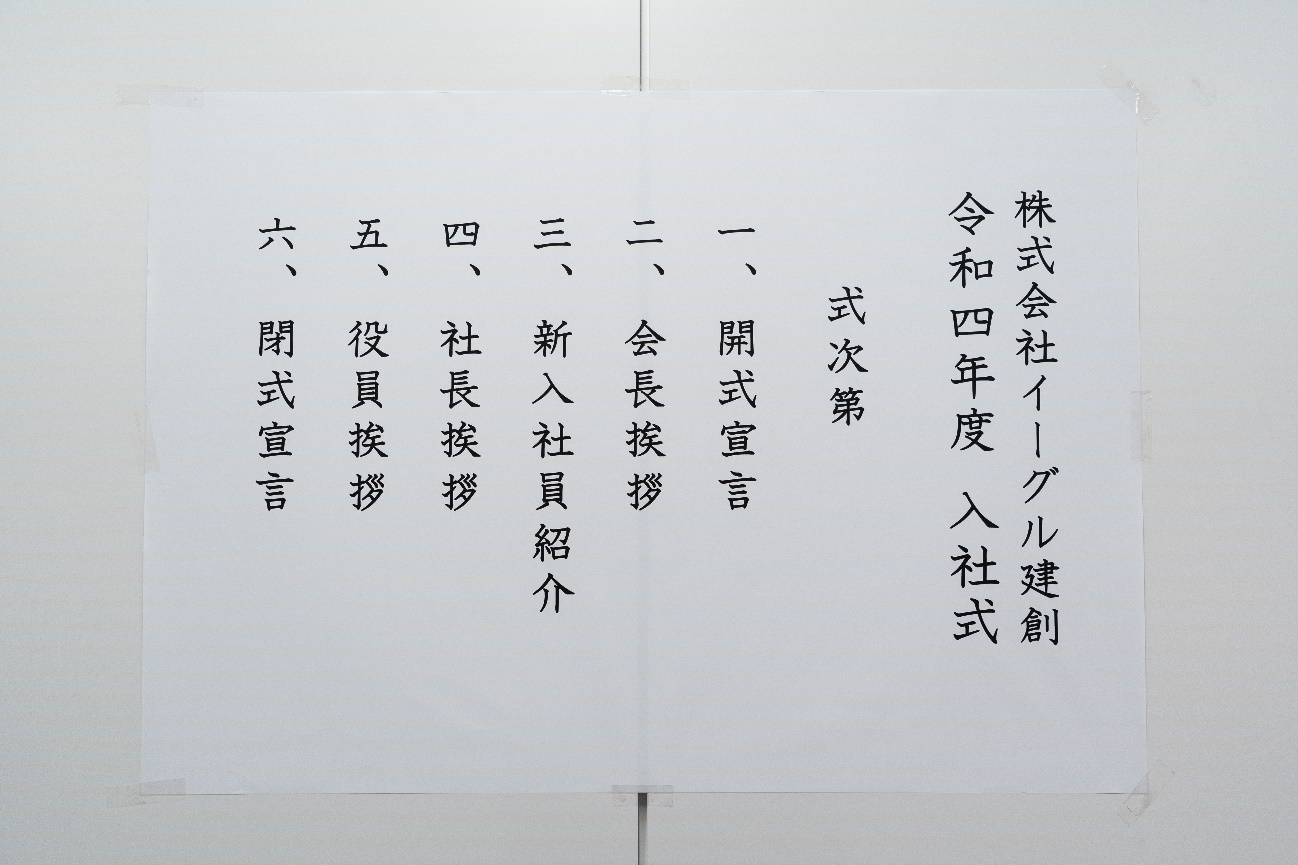 株式会社イーグル建創
令和四年度 入社式
式次第
一、 開式宣言
二、 会長挨拶
三、 新入社員紹介
四、 社長挨拶
五、 役員挨拶
六、 閉式宣言